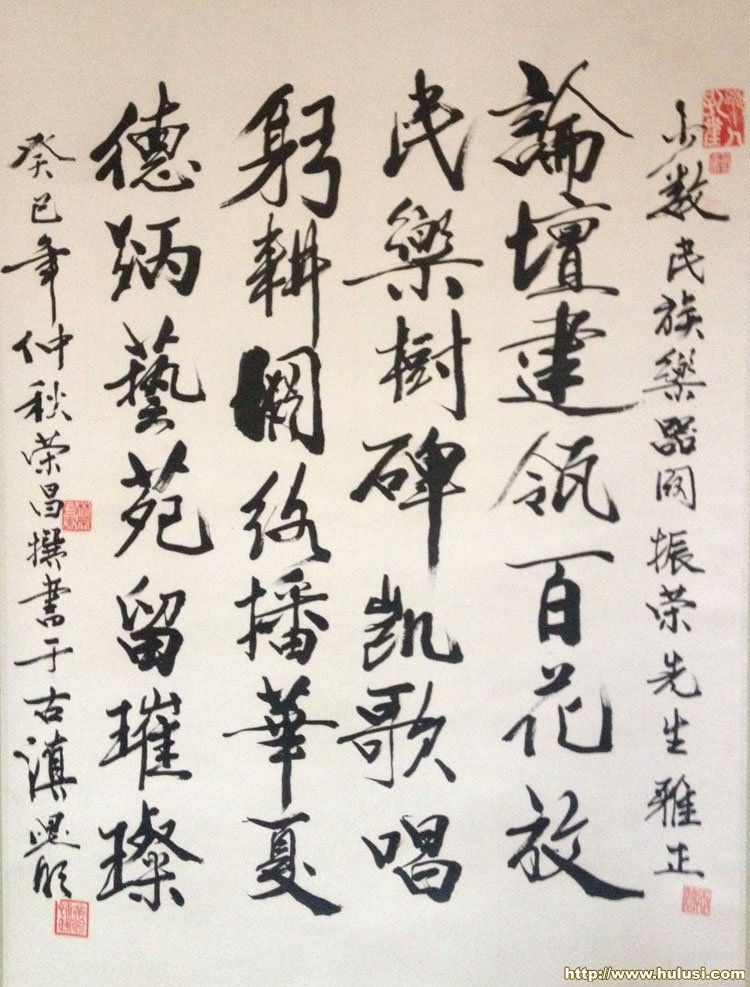 少数民族樂器网振荣先生雅正
論壇建瓴百花放
民樂樹碑凯歌唱
躬耕網络播華夏
德炳藝苑留璀璨
癸巳年仲秋荣昌撰書于古滇昆明
http://www.hulusi.com